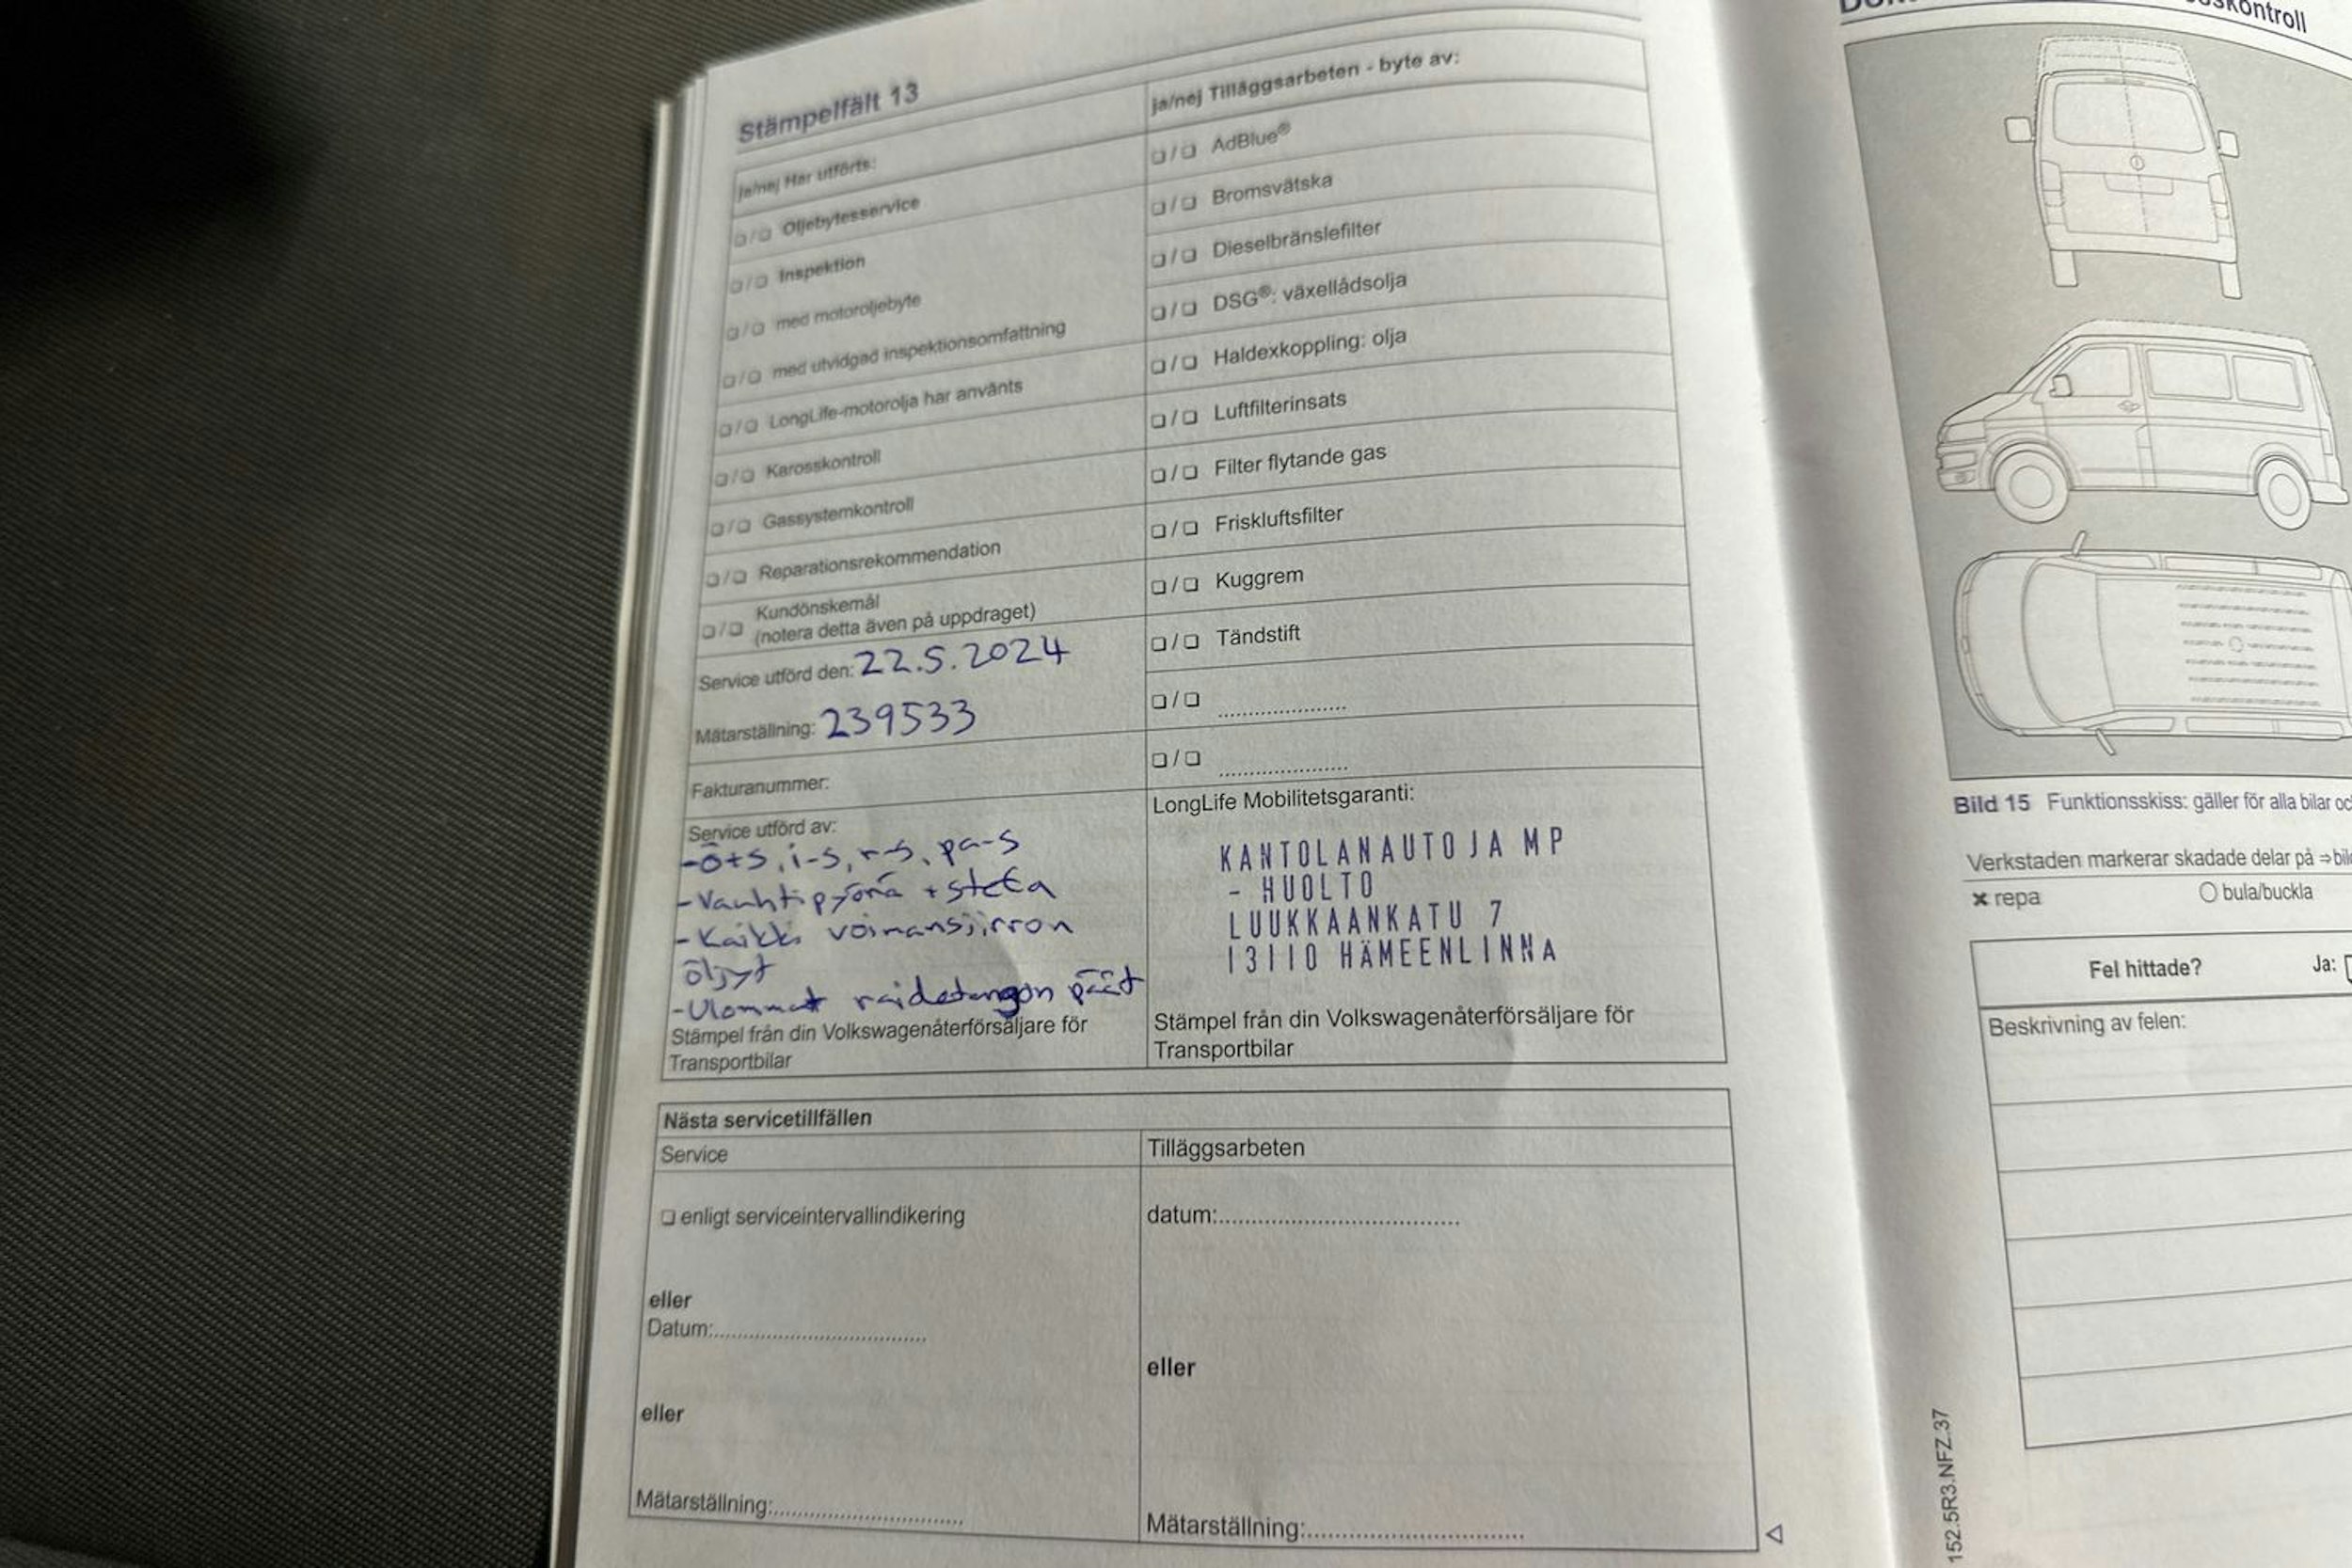 Stämpelfält 13
ja/nej Har utförts:
❏/❏ Oljebytesservice
❏/❏ Inspektion
❏/❏ med motoroljebyte
❏/❏ med utvidgad inspektionsomfattning
❏/❏ LongLife-motorolja har använts
❏/❏ Karosskontroll
❏/❏ Gassystemkontroll
❏/❏ Reparationsrekommendation
❏/❏ Kundönskemål
(notera detta även på uppdraget)
Service utförd den: 22.5.2024
Mätarställning: 239533
Fakturanummer:
Service utförd av:
-ö+s, i-s, r-s, pa-s
-Vauhtipyörä +
-Kaikki voimansiirron
öljyt
-Ulommat raidetangon päät
Stämpel från din Volkswagenåterförsäljare för
Transportbilar
ja/nej Tilläggsarbeten - byte av:
❏/❏ AdBlue®
❏/❏ Bromsvätska
❏/❏ Dieselbränslefilter
❏/❏ DSG®: växellådsolja
❏/❏ Haldexkoppling: olja
❏/❏ Luftfilterinsats
❏/❏ Filter flytande gas
❏/❏ Friskluftsfilter
❏/❏ Kuggrem
❏/❏ Tändstift
❏/❏ ......................
❏/❏ ......................
LongLife Mobilitetsgaranti:
KANTOLANAUTO JA MP
- HUOLTO
LUUKKAANKATU 7
13110 HÄMEENLINNA
Stämpel från din Volkswagenåterförsäljare för
Transportbilar
Nästa servicetillfällen
Service
❏ enligt serviceintervallindikering
eller
Datum:..................................
eller
Mätarställning:..............................
Tilläggsarbeten
datum:.....................................
eller
Mätarställning:.................................
skontroll
Bild 15 Funktionsskiss: gäller för alla bilar
Verkstaden markerar skadade delar på ⇒
✖ repa
○ bula/buckla
Fel hittade?
Ja:
Beskrivning av felen:
152.5R3.NFZ.37